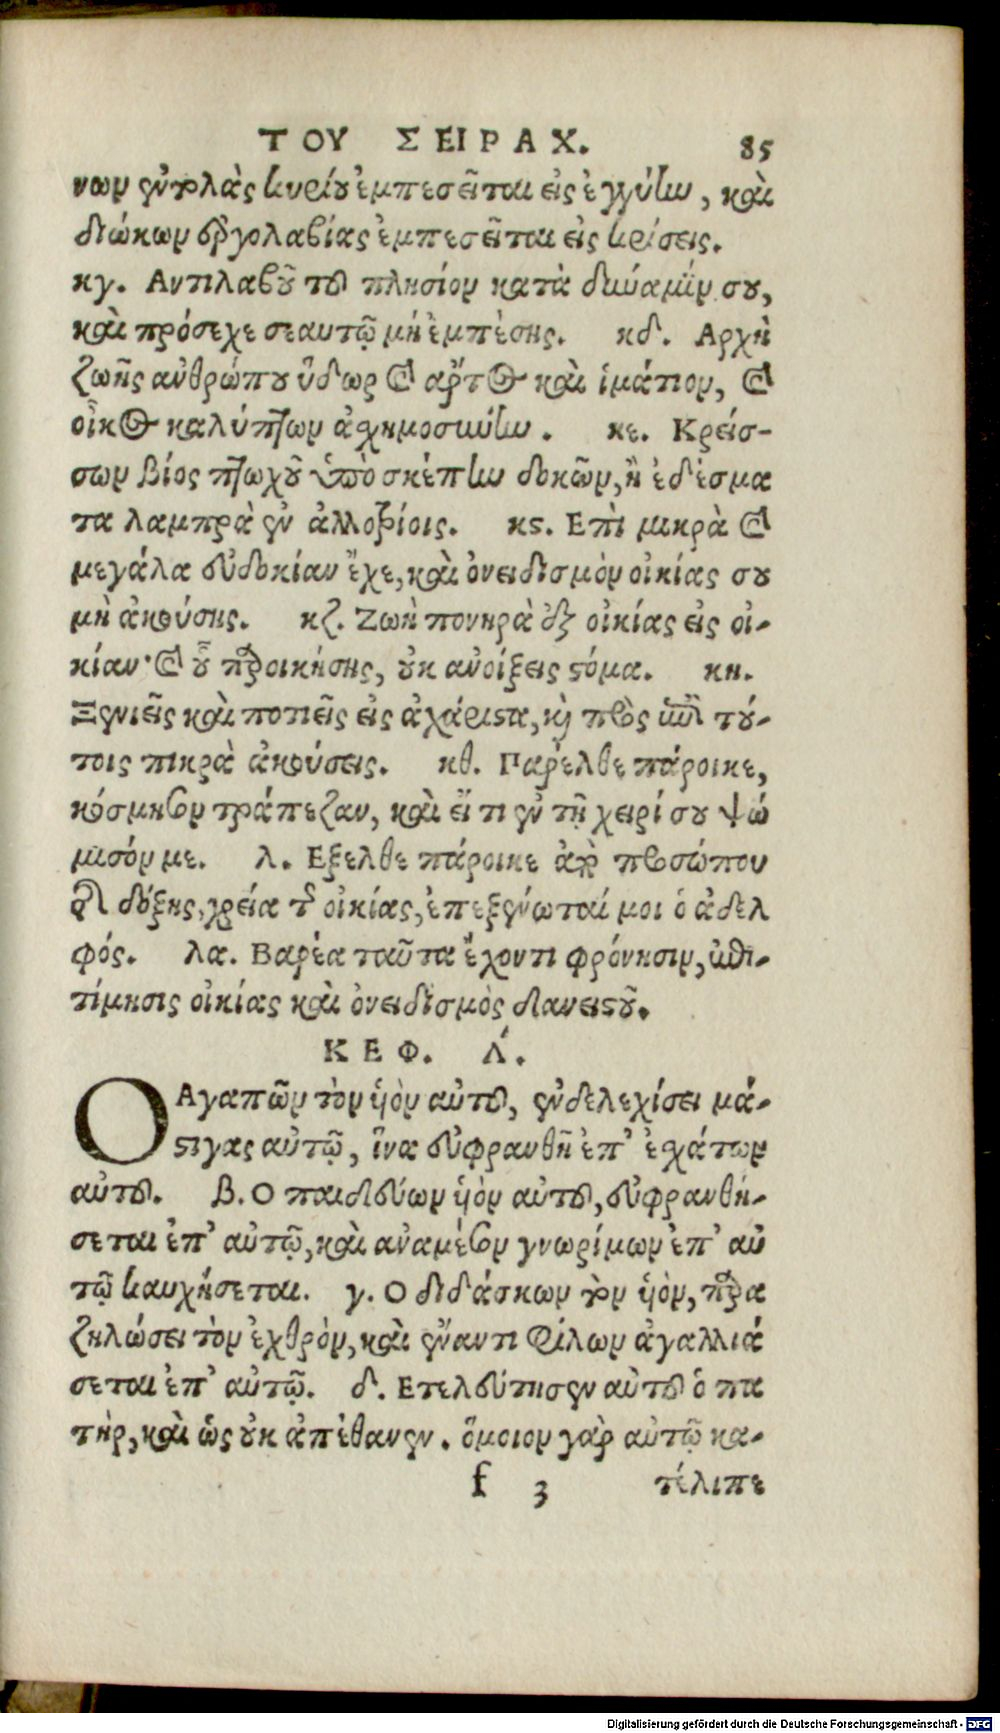 ΤΟΥ ΣΕΙΡΑΧ. 85
νων ἐντολὰς κυρίου ἐμπεσεῖται εἰς ἐγγύην, καὶ
διώκων ἐργολαβίας ἐμπεσεῖται εἰς κρίσεις.
κγ. Αντιλαβοῦ τοῦ πλησίον κατὰ δύναμίν σου,
καὶ πρόσεχε σεαυτῷ μὴ ἐμπέσης. κδ. Αρχὴ
ζωῆς ἀνθρώπου ὕδωρ καὶ ἄρτος καὶ ἱμάτιον, καὶ
οἶκος καλύπτων ἀσχημοσύνην. κε. Κρείσ-
σων βίος πτωχοῦ ὑπὸ σκέπην δοκῶν, ἢ ἐδέσμα
τα λαμπρὰ ἐν ἀλλοτρίοις. κς. Επὶ μικρὰ καὶ
μεγάλα εὐδοκίαν ἔχε, καὶ ὀνειδισμὸν οἰκίας σου
μὴ ἀκούσης. κζ. Ζωὴ πονηρὰ ἐξ οἰκίας εἰς οἰ-
κίαν· καὶ οὗ παροικήσης, οὐκ ἀνοίξεις στόμα. κη.
Ξενιεῖς καὶ ποτιεῖς εἰς ἀχάριστα, καὶ πρὸς ἐπὶ τού-
τοις πικρὰ ἀκούσεις. κθ. Πάρελθε πάροικε,
κόσμησον τράπεζαν, καὶ εἴ τι ἐν τῇ χειρί σου ψώ
μισόν με. λ. Εξελθε πάροικε ἀπὸ προσώπου
δόξης, χρεία τῆς οἰκίας, ἐπεξένωταί μοι ὁ ἀδελ
φός. λα. Βαρέα ταῦτα ἔχοντι φρόνησιν, ἐπι-
τίμησις οἰκίας καὶ ὀνειδισμὸς δανειστοῦ.
ΚΕΦ. Λ́.
Ο Αγαπῶν τὸν ὑὸν αὐτοῦ, ἐνδελεχίσει μά-
στιγας αὐτῷ, ἵνα εὐφρανθῇ ἐπ' ἐσχάτων
αὐτοῦ. β. Ο παιδεύων ὑὸν αὐτοῦ, εὐφρανθή-
σεται ἐπ' αὐτῷ, καὶ ἀναμέσον γνωρίμων ἐπ' αὐ
τῷ καυχήσεται. γ. Ο διδάσκων τὸν ὑὸν, παρα
ζηλώσει τὸν ἐχθρὸν, καὶ ἔναντι φίλων ἀγαλλιά
σεται ἐπ' αὐτῷ. δ. Ετελεύτησεν αὐτοῦ ὁ πα
τὴρ, καὶ ὡς οὐκ ἀπέθανεν. ὅμοιον γὰρ αὐτῷ κα-
f 3 τέλιπε
Digitalisierung gefördert durch die Deutsche Forschungsgemeinschaft - DFG